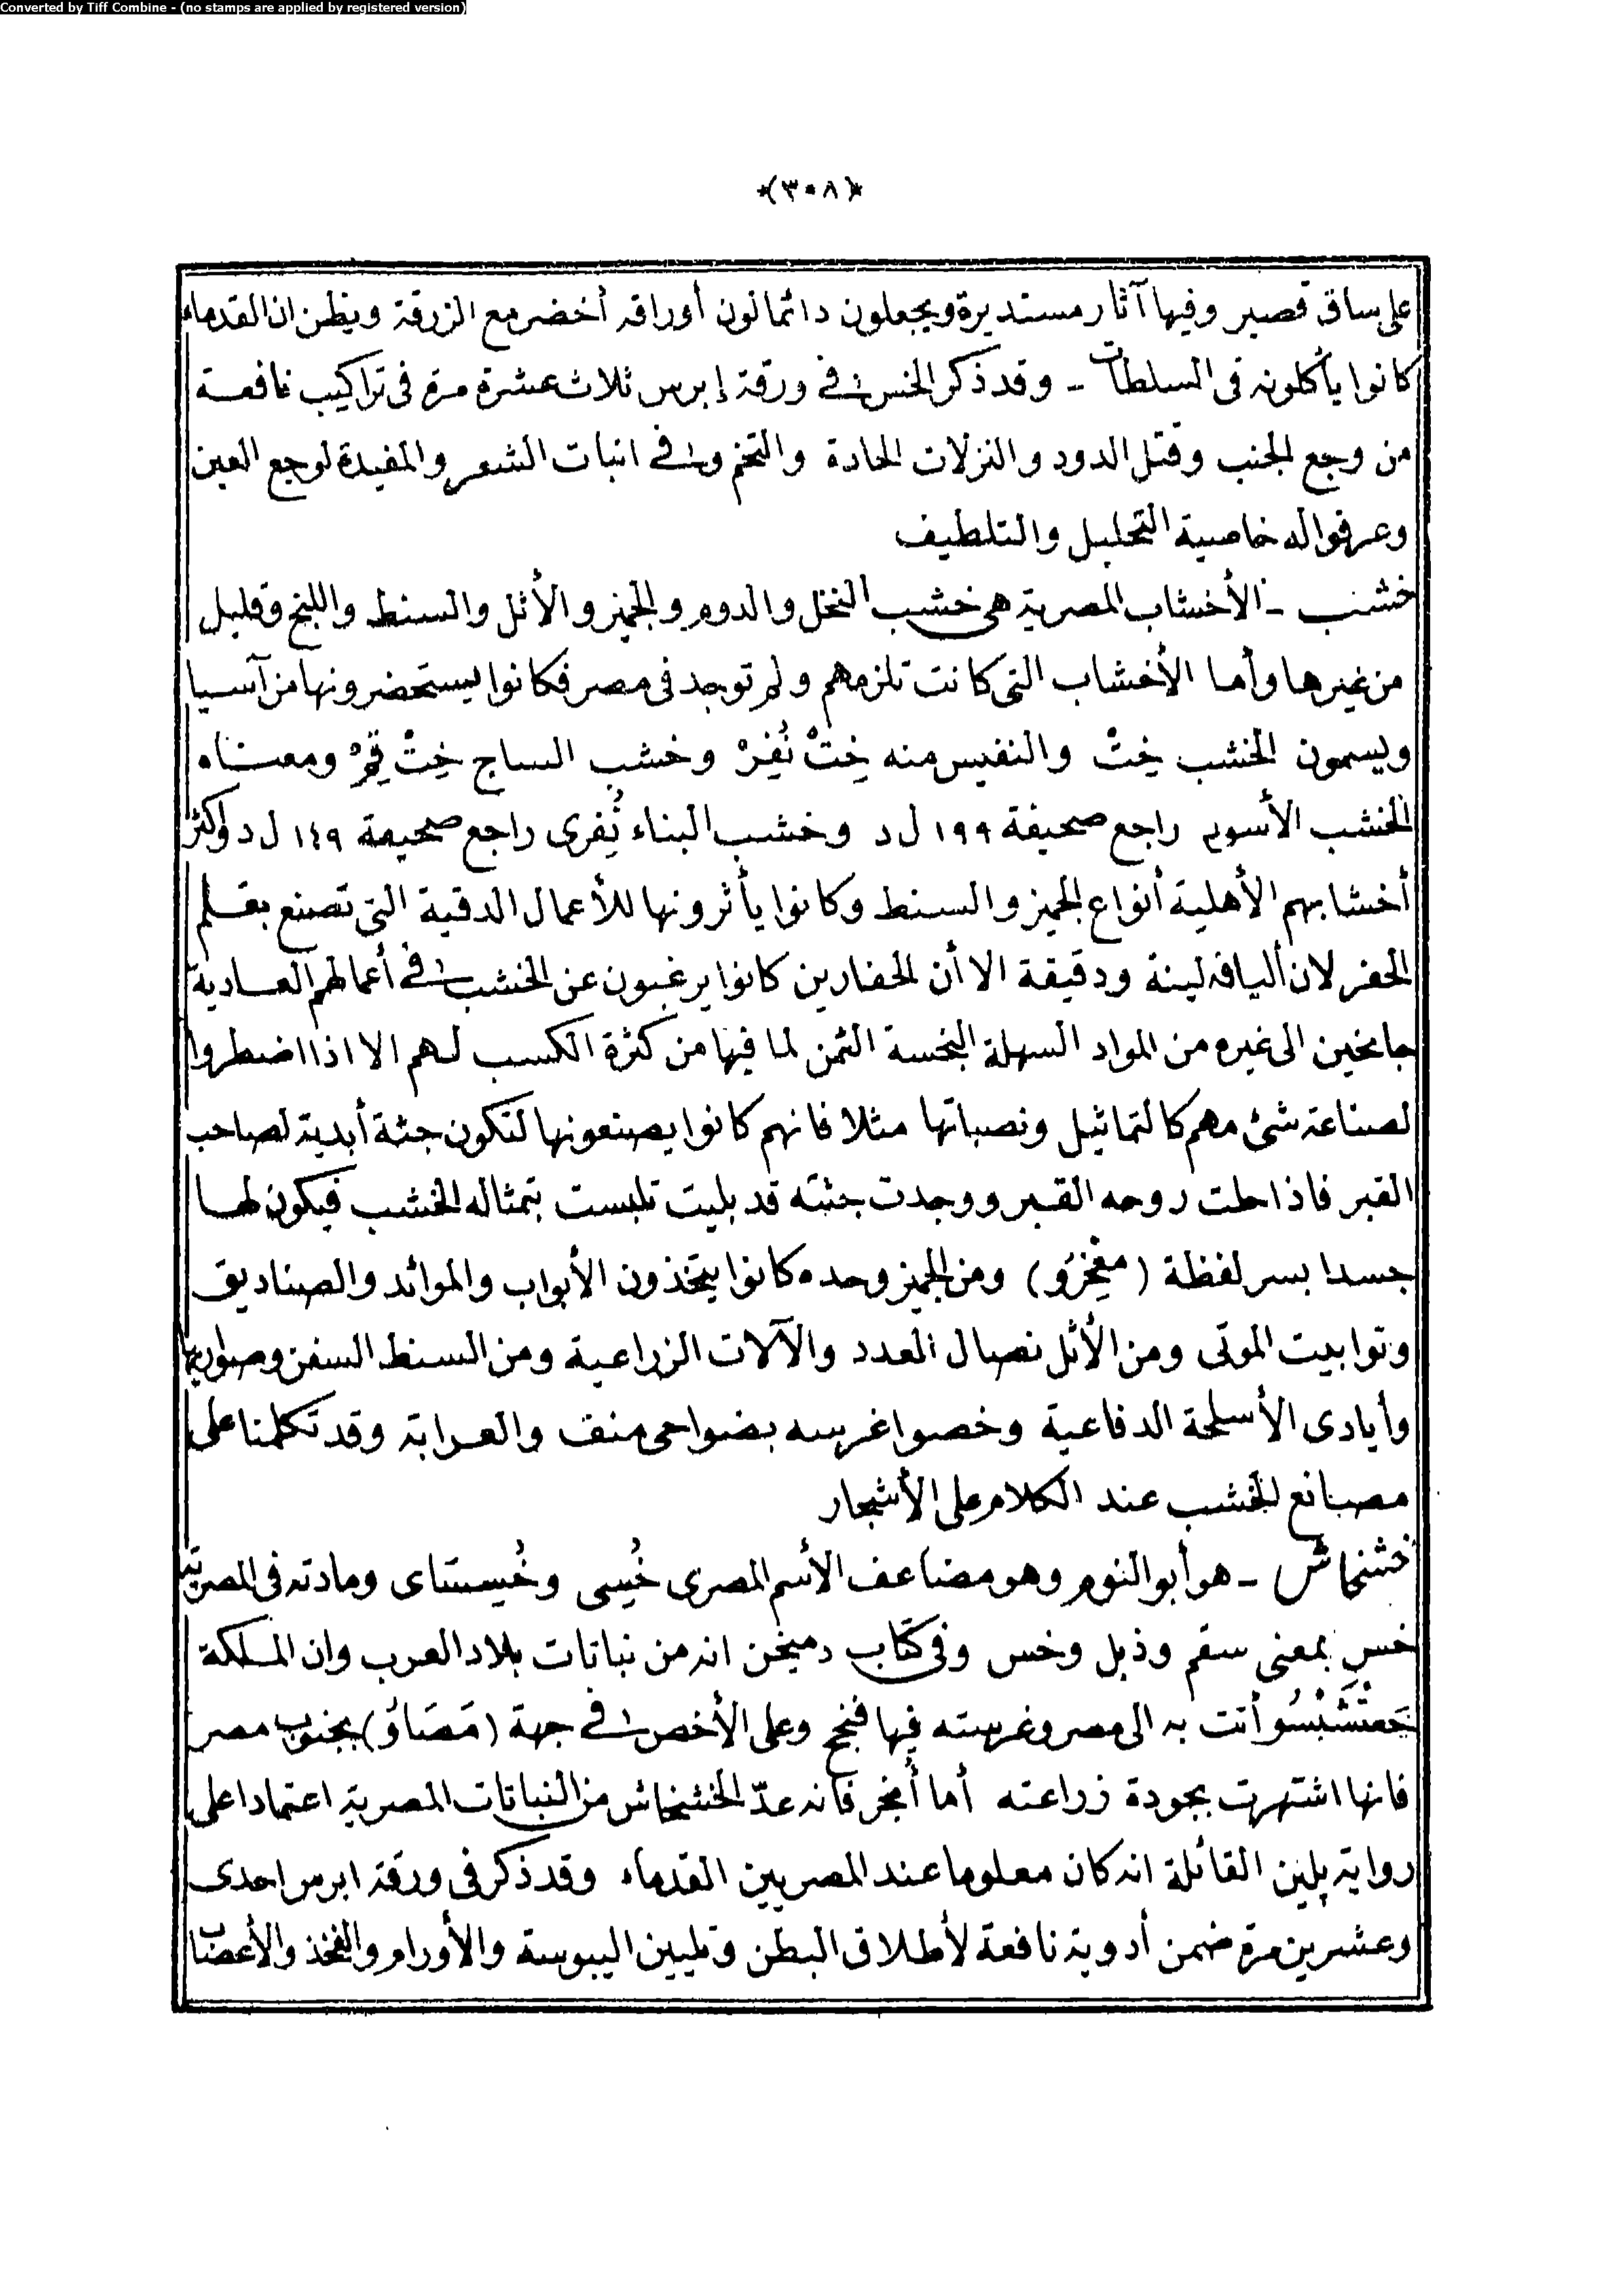 Converted by Tiff Combine - (no stamps are applied by registered version)
*(٣٠٨)*
على ساق قصير وفيها آثار مستديرة ويجعلون دائما لون أوراقه أخضر مع الزرقة ويظن ان القدماء
كانوا يأكلونه فى السلطات - وقد ذكر الخس فى ورقة إبرس ثلاث عشرة مرة فى تراكيب نافعة
من وجع الجنب وقتل الدود والنزلات الحادة والتخم وفى انبات الشعر والمفيدة لوجع العين
وعرفوا له خاصية التحليل والتلطيف
خشب - الأخشاب المصرية هى خشب النخل والدوم والجميز والأثل والسنط واللبخ وقليل
من غيرها وأما الأخشاب التى كانت تلزمهم ولم توجد فى مصر فكانوا يستحضرونها من آسيا
ويسمون الخشب خِتْ والنفيس منه خِتْ نُفِرْ وخشب الساج خِتْ قِمْ ومعناه
الخشب الأسود راجع صحيفة ١٩٩ ل د وخشب البناء نُفِرى راجع صحيفة ١٤٩ ل د وأكثر
أخشابهم الأهلية أنواع الجميز والسنط وكانوا يأثرونها للأعمال الدقية التى تصنع بقلم
الحفر لان أليافه لينة ودقيقة الا أن الحفارين كانوا يرغبون عن الخشب فى أعمالهم العادية
جانحين الى غيره من المواد السهلة البخسة الثمن لما فيها من كثرة الكسب لهم الا اذا اضطروا
لصناعة شئ مهم كالتماثيل ونصباتها مثلا فانهم كانوا يصنعونها لتكون جثة أبدية لصاحب
القبر فاذا حلت روحه القبر ووجدت جثته قد بليت تلبست بتمثاله الخشب فيكون لها
جسدا بسر لفظة ( ) ومن الجميز وحده كانوا يتخذون الأبواب والموائد والصناديق
وتوابيت الموتى ومن الأثل نصال العدد والآلات الزراعية ومن السنط السفن وصواريها
وأيادى الأسلحة الدفاعية وخصوا غرسه بضواحى منف والعرابة وقد تكلمنا على
مصانع الخشب عند الكلام على الأشجار
خشخاش - هو أبو النوم وهو مضاعف الأسم المصرى خُسِى وخُسِستاى ومادته فى المصرية
خس بمعنى سقم وذبل وخس وفى كتاب دميخن انه من نباتات بلاد العرب وان الملكة
حَعتْشَبْسُو أتت به الى مصر وغرسته فيها فنجح وعلى الأخص فى جهة (مَصَاوُ) بجنوب مصر
فانها اشتهرت بجودة زراعته أما أنجر فانه عدّ الخشخاش من النباتات المصرية اعتمادا على
رواية پلين القائلة انه كان معلوما عند المصريين القدماء وقد ذكر فى ورقة ابرس احدى
وعشرين مرة ضمن أدوية نافعة لأطلاق البطن وتليين اليبوسة والأورام والفخذ والأعصاب